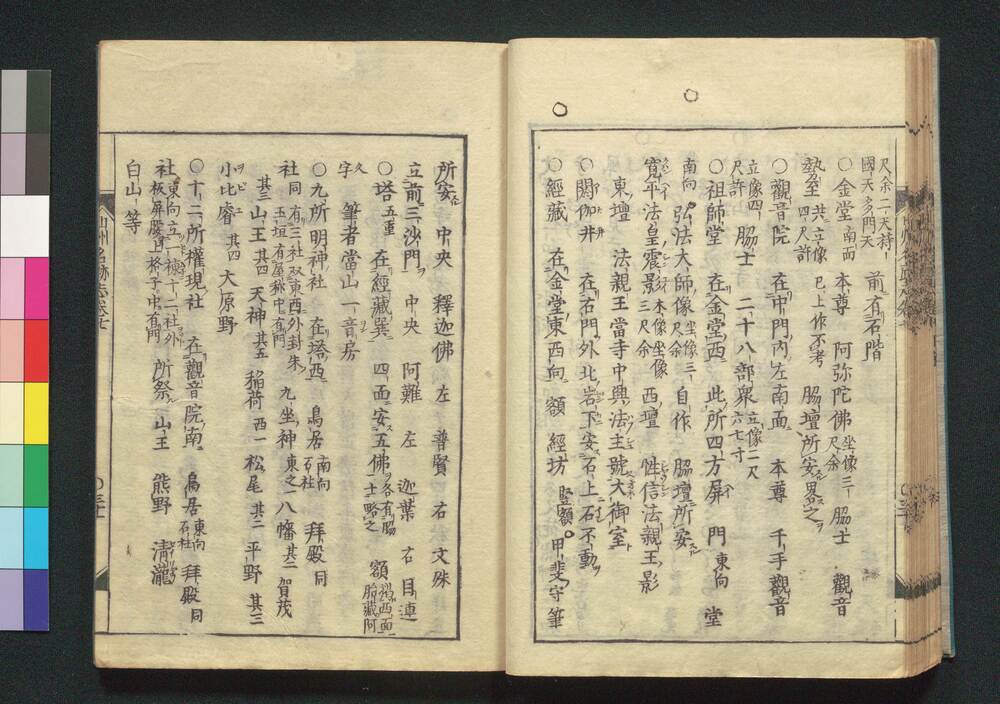 尺余二天持
國天多門天 前有石階
○金堂 南面 本尊 阿弥陀佛 坐像三尺余 脇士 觀音
勢至 共立像四尺許 已上作不考 脇壇所安畧之
○觀音院 在中門内左南面 本尊 千手觀音
立像四尺許 脇士 二十八部衆 立像二尺六七寸
○祖師堂 在金堂西 此所四方屏 門 東向 堂
南向 弘法大師像 坐像三尺余 自作 脇壇所安
寛平法皇震影 木像坐像三尺余 西壇 性信法親王影
東壇 法親王當寺中興法主號大御室
○閼伽井 在右門外北岩下安石上石不動
○經藏 在金堂東西向 額 經坊 竪額 甲斐守筆
所安 中央 釋迦佛 左 普賢 右 文殊
立前三沙門 中央 阿難 左 迦葉 右 目連
○塔 五重 在經藏巽 四面安五佛 各有脇士略之 額 揭西面胎藏阿
字 筆者當山一音房
○九所明神社 在塔西 鳥居 南向石柱 拜殿 同
社 同有三社双東西外封朱玉垣有屋称中有門 九坐神 東之一 八幡 其二 賀茂
其三 山王 其四 天神 其五 稲荷 西一 松尾 其二 平野 其三
小比睿 其四 大原野
○十二所權現社 在觀音院南 鳥居 東向石柱 拜殿 同
社 東向立一棟十二社外板屏慶上格子中有門 所祭 山王 熊野 清瀧
白山等
山州名跡志卷七